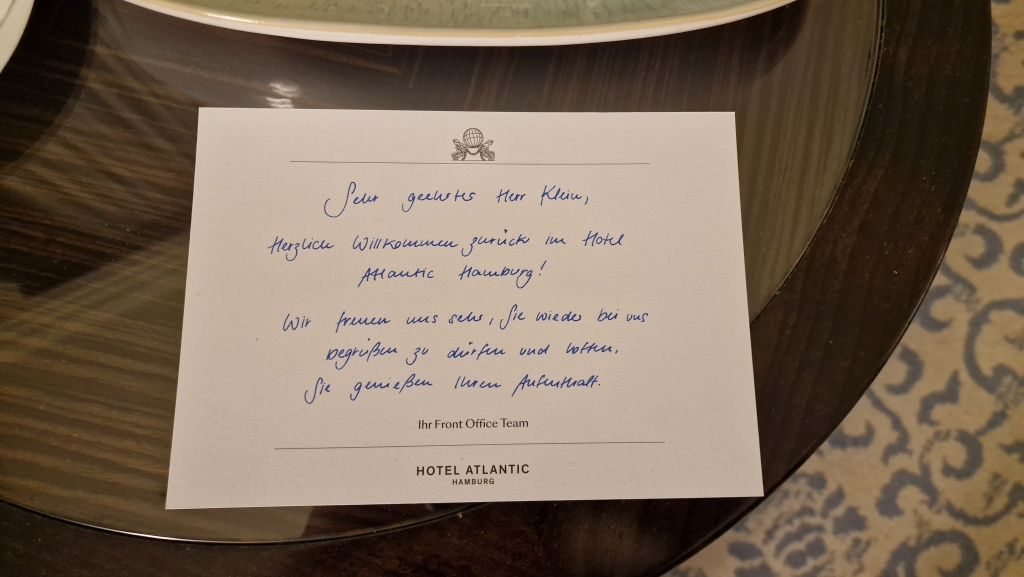 Sehr geehrter Herr Klein,
Herzlich Willkommen zurück im Hotel
Atlantic Hamburg!
Wir freuen uns sehr, Sie wieder bei uns
begrüßen zu dürfen und hoffen,
Sie genießen Ihren Aufenthalt.
Ihr Front Office Team
HOTEL ATLANTIC
HAMBURG